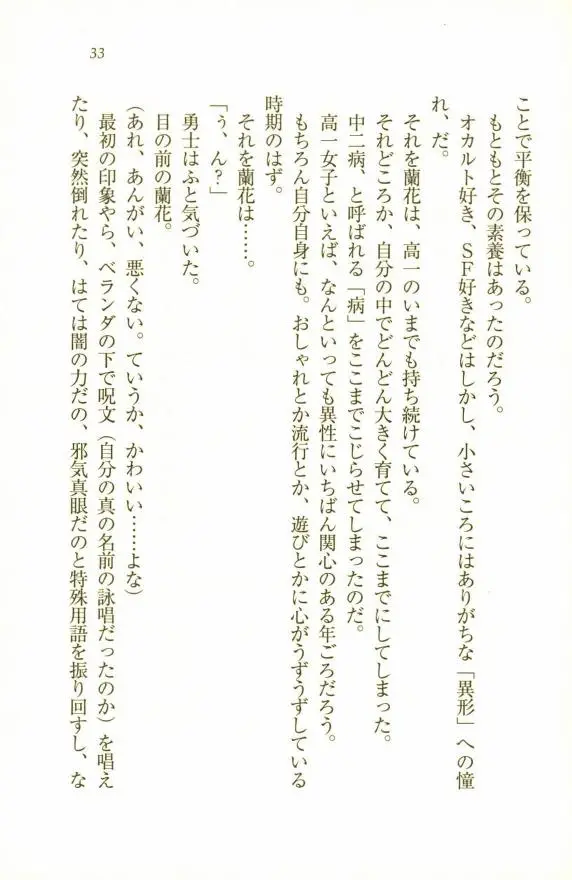 33
ことで平衡を保っている。
もともとその素養はあったのだろう。
オカルト好き、ＳＦ好きなどはしかし、小さいころにはありがちな「異形」への憧
れ、だ。
それを蘭花は、高一のいまでも持ち続けている。
それどころか、自分の中でどんどん大きく育てて、ここまでにしてしまった。
中二病、と呼ばれる「病」をここまでこじらせてしまったのだ。
高一女子といえば、なんといっても異性にいちばん関心のある年ごろだろう。
もちろん自分自身にも。おしゃれとか流行とか、遊びとかに心がうずうずしている
時期のはず。
それを蘭花は……。
「ぅ、ん？」
勇士はふと気づいた。
目の前の蘭花。
（あれ、あんがい、悪くない。ていうか、かわいい……よな）
最初の印象やら、ベランダの下で呪文（自分の真の名前の詠唱だったのか）を唱え
たり、突然倒れたり、はては闇の力だの、邪気真眼だのと特殊用語を振り回すし、な